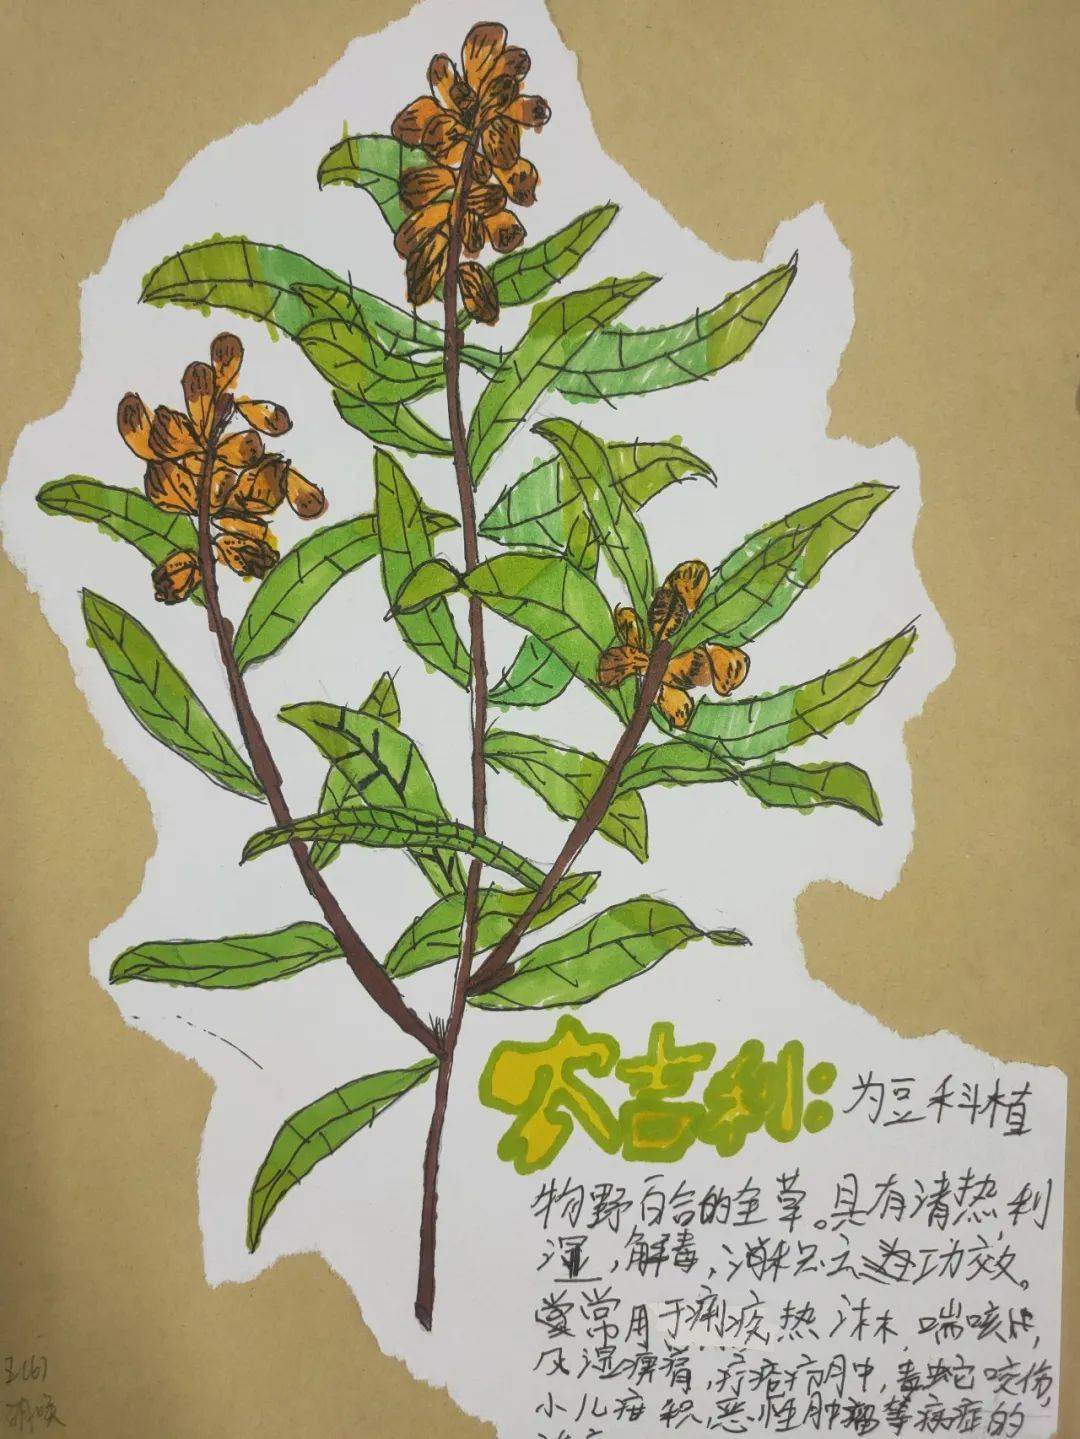 农吉利:为豆科植
物野百合的全草。具有清热利
湿,解毒,消积之功效。
常常用于痢疾,热淋,喘咳,
风湿痹痛,疔疮疖肿,毒蛇咬伤,
小儿疳积,恶性肿瘤等病症的
五(6)